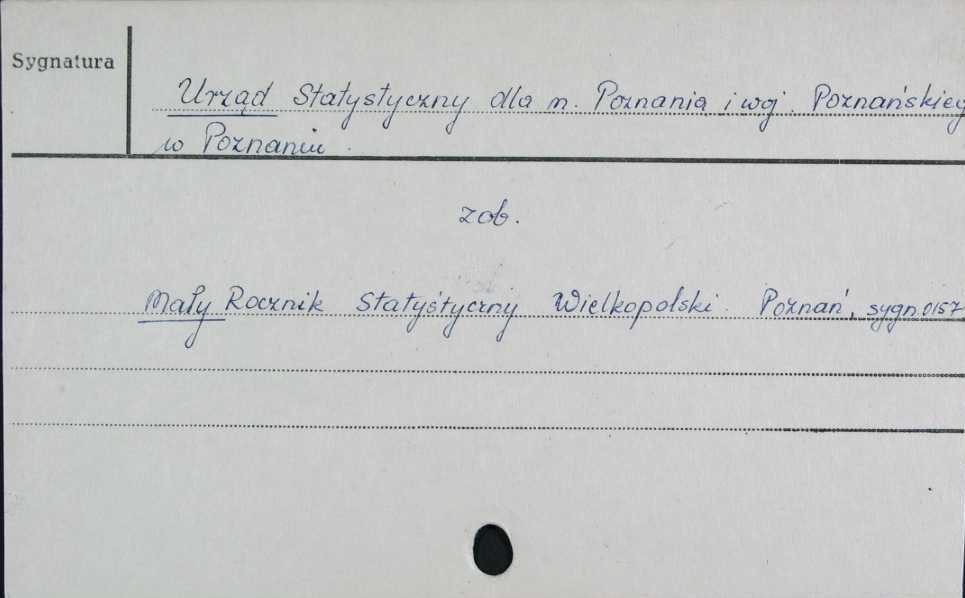 Sygnatura
Urząd Statystyczny dla m. Poznania i woj. Poznańskieg
w Poznaniu.
zob.
Mały Rocznik Statystyczny Wielkopolski. Poznań, sygn. 0157